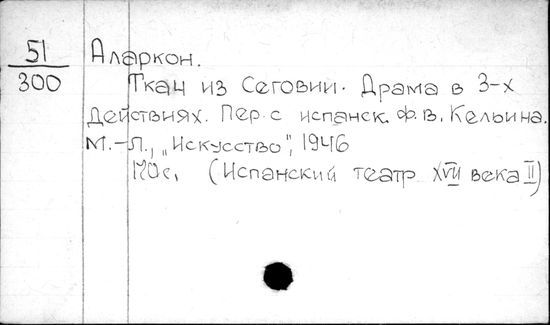 51 Аларкон.
300 Ткач из Сеговии. Драма в 3-х
действиях. Пер. с испанск. Ф.В. Кельина.
М.-Л., „Искусство", 1946
170 с. (Испанский театр XVII века II)